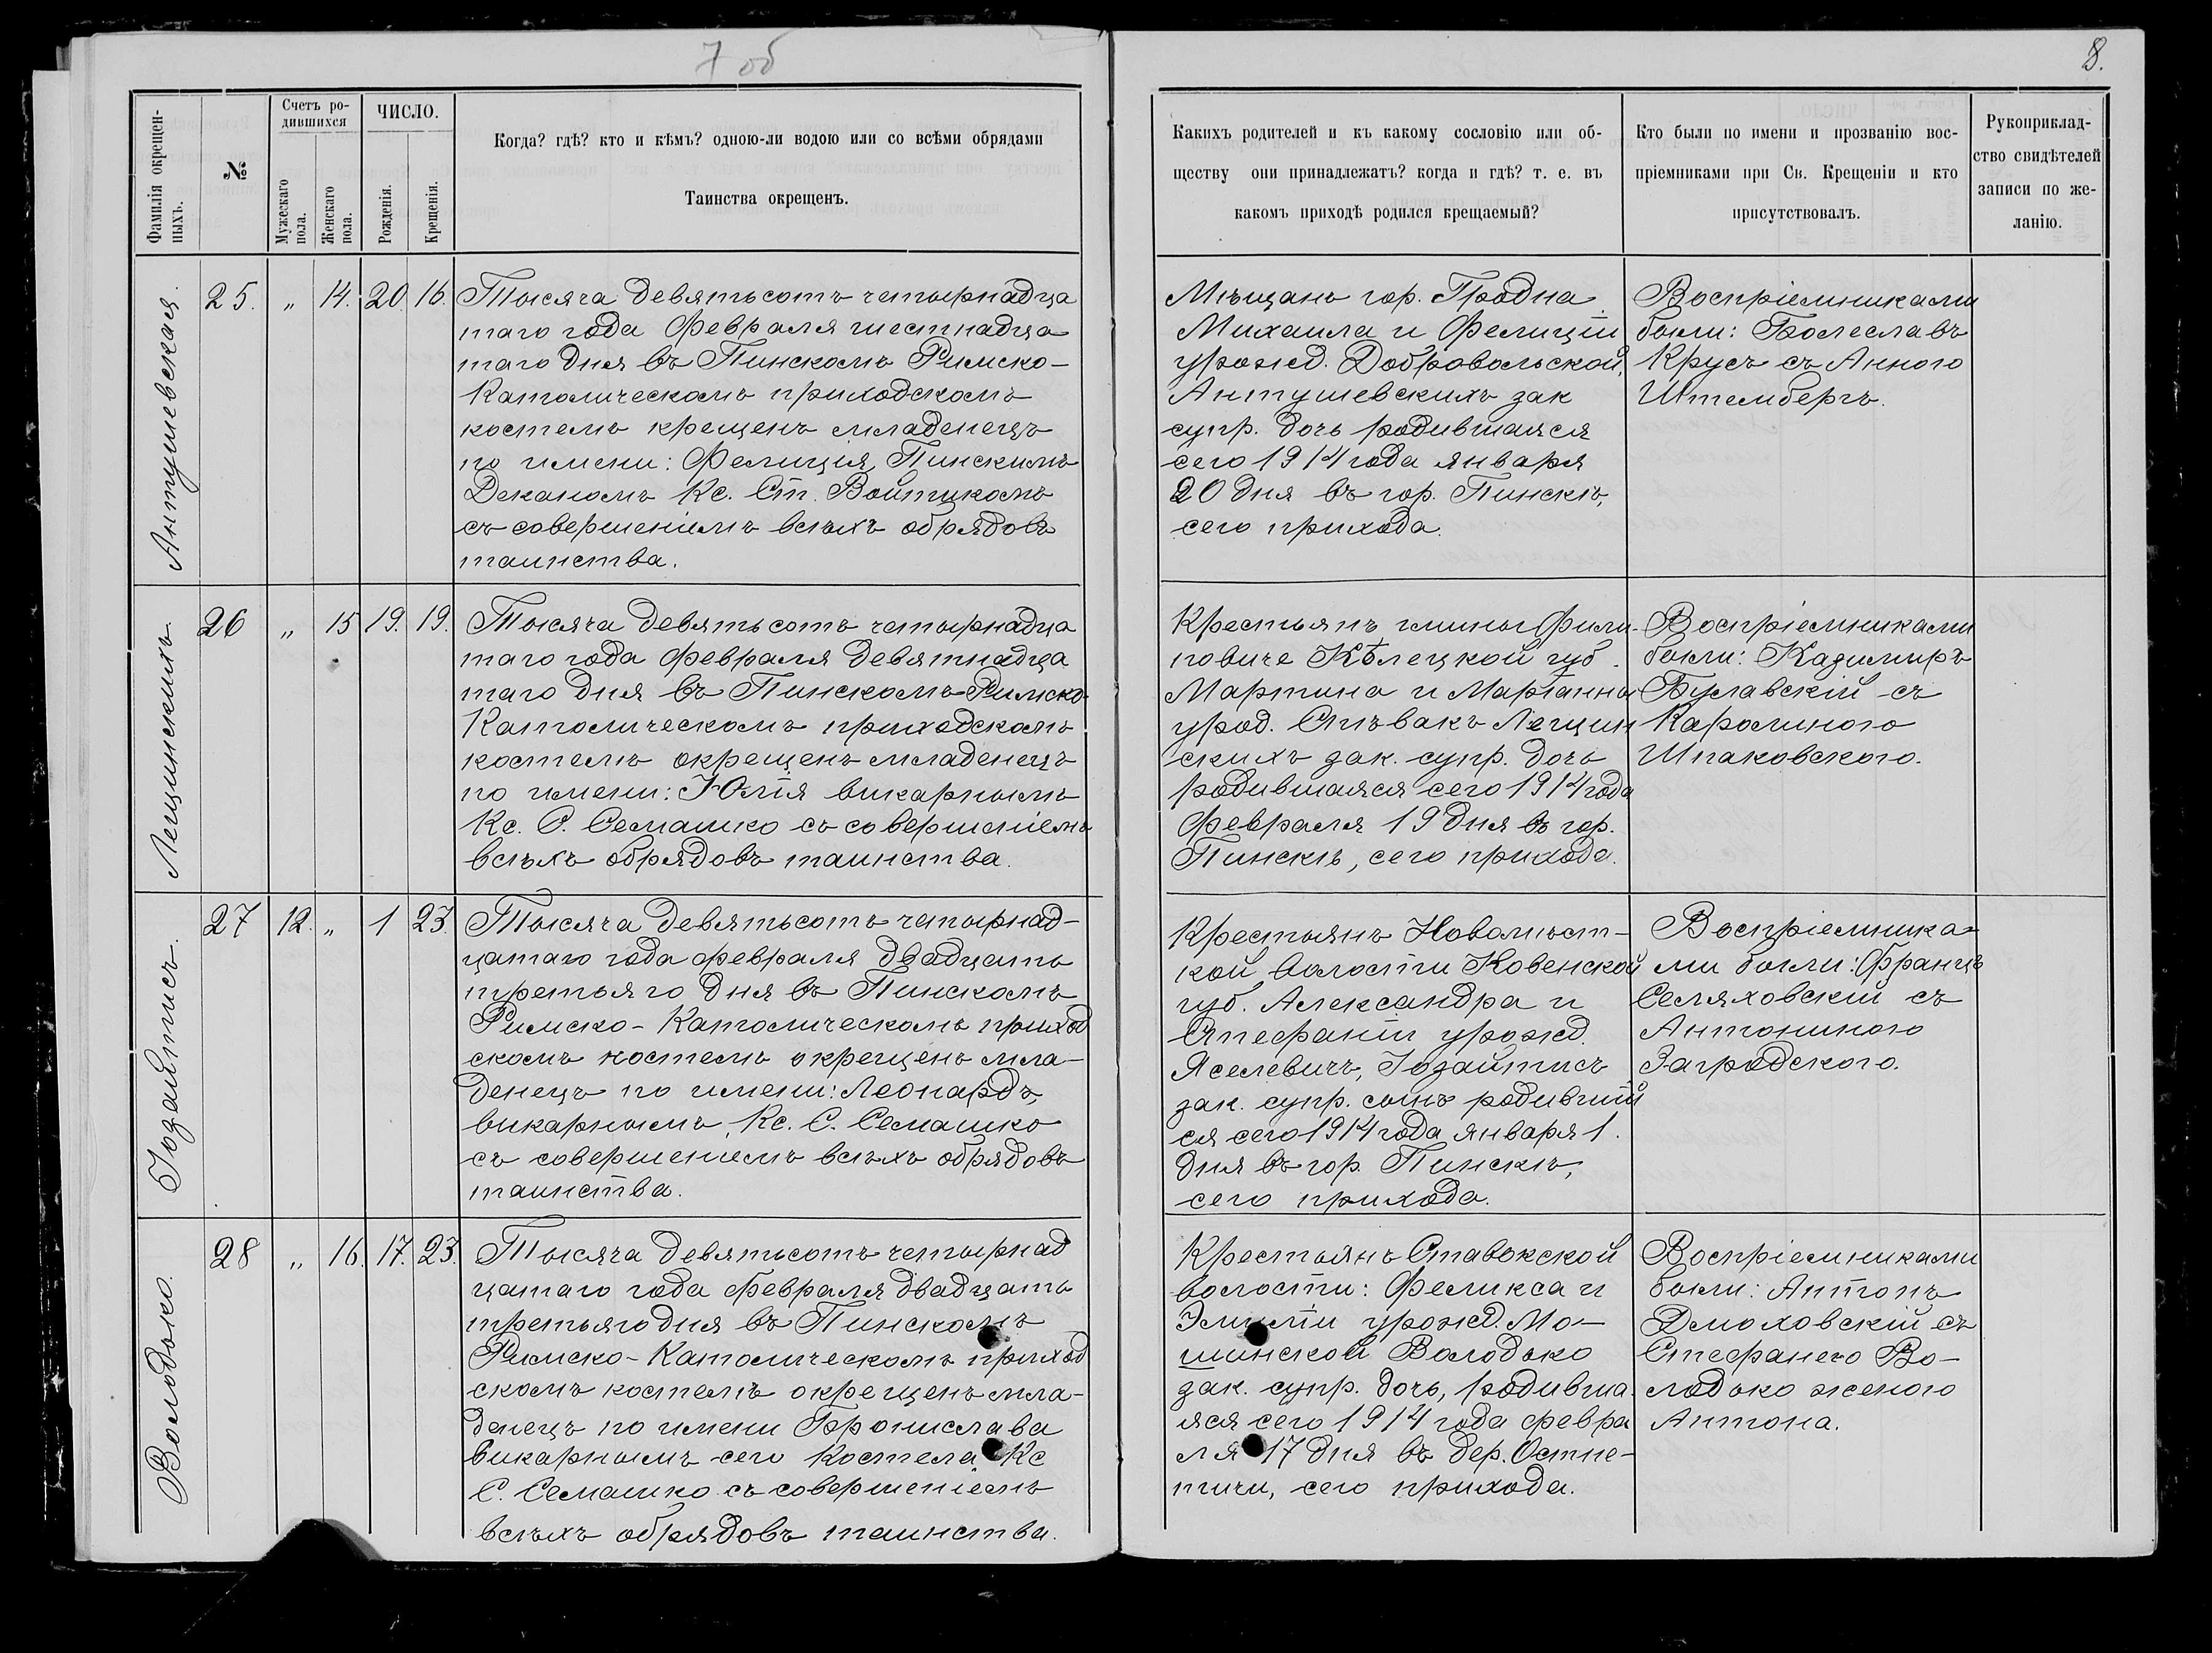 7 об
8.
Фамилія окрещен-
ныхъ.
№
Счетъ ро-
дившихся
Мужескаго
пола.
Женскаго
пола.
ЧИСЛО.
Рожденія.
Крещенія.
Когда? гдѣ? кто и кѣмъ? одною-ли водою или со всѣми обрядами
Таинства окрещенъ.
Какихъ родителей и къ какому сословію или об-
ществу они принадлежатъ? когда и гдѣ? т. е. въ
какомъ приходѣ родился крещаемый?
Кто были по имени и прозванію вос-
пріемниками при Св. Крещеніи и кто
присутствовалъ.
Рукоприклад-
ство свидѣтелей
записи по же-
ланію.
Антушевская.
25. „ 14. 20. 16.
Тысяча девятьсотъ четырнадца
таго года февраля шестнадца
таго дня въ Пинскомъ Римско-
Католическомъ приходскомъ
костелѣ крещенъ младенецъ
по имени: Фелиція, Пинскимъ
Деканомъ Кс. Ст. Войтцкомъ
съ совершеніемъ всѣхъ обрядовъ
таинства.
Мѣщанъ гор. Гродна
Михаила и Фелиціи
урожд. Добровольской,
Антушевскихъ зак
супр. дочь родившаяся
сего 1914 года января
20 дня въ гор. Пинскѣ,
сего прихода.
Воспріемниками
были: Болеславъ
Крусъ съ Анною
Штембергъ.
Лещинскихъ
26 „ 15 19. 19.
Тысяча девятьсотъ четырнадца
таго года февраля девятнадца
таго дня въ Пинскомъ Римско-
Католическомъ приходскомъ
костелѣ окрещенъ младенецъ
по имени: Юлія викарнымъ
Кс. С. Семашко съ совершеніемъ
всѣхъ обрядовъ таинства.
Крестьянъ гмины Фили-
повиче Кѣлецкой губ.
Мартина и Маріанны
урод. Стѣвакъ Лещин
скихъ зак. супр. дочь
родившаяся сего 1914 года
Февраля 19 дня въ гор.
Пинскѣ, сего прихода.
Воспріемниками
были: Казимиръ
Буславскій съ
Каролиною
Шпаковскою.
Іозайтисъ.
27 12. „ 1 23.
Тысяча девятьсотъ четырнад-
цатаго года февраля двадцать
третьяго дня въ Пинскомъ
Римско-Католическомъ приход
скомъ костелѣ окрещенъ мла-
денецъ по имени: Леонардъ,
викарнымъ Кс. С. Семашко
съ совершеніемъ всѣхъ обрядовъ
таинства.
Крестьянъ Новомѣст-
кой волости Ковенской
губ. Александра и
Стефаніи урожд.
Яселевичъ, Іозайтисъ
зак. супр. сынъ родившій
ся сего 1914 года января 1.
дня въ гор. Пинскѣ,
сего прихода.
Воспріемника-
ми были: Францъ
Селяховскій съ
Антониною
Загродскою.
Володько.
28 „ 16. 17. 23.
Тысяча девятьсотъ четырнад
цатаго года февраля двадцать
третьяго дня въ Пинскомъ
Римско-Католическомъ приход
скомъ костелѣ окрещенъ мла-
денецъ по имени Бронислава
викарнымъ сего Костела Кс
С. Семашко съ совершеніемъ
всѣхъ обрядовъ таинства.
Крестьянъ Ставокской
волости: Феликса и
Эмиліи урожд. Мо-
шинской Володько
зак. супр. дочь, родивша-
яся сего 1914 года февра
ля 17 дня въ дер. Остпе-
тичи, сего прихода.
Воспріемниками
были: Антонъ
Дмоховскій съ
Стефанею Во-
лодько женою
Антона.